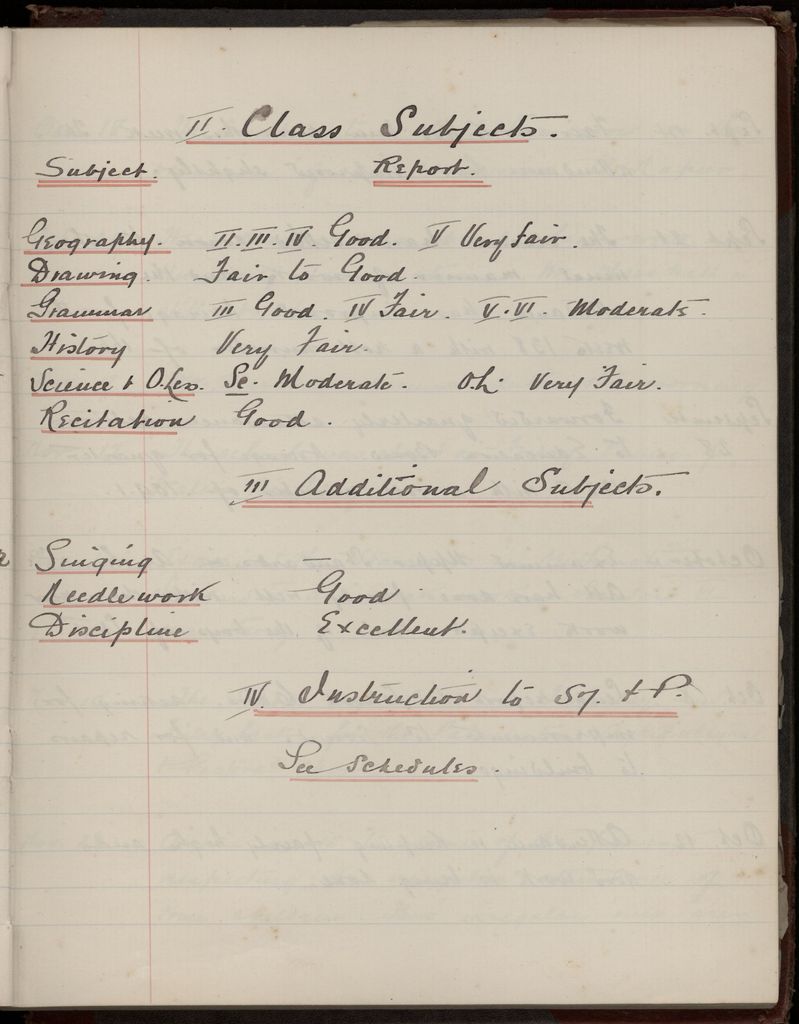 II. Class Subjects.
Subject. Report.
Geography. II. III. IV. Good. V Very fair.
Drawing. Fair to Good.
Grammar III Good. IV Fair. V. VI. Moderate.
History Very Fair.
Science & O.Les. Sc. Moderate. O.L. Very Fair.
Recitation Good.
III Additional Subjects.
Singing —
Needlework Good
Discipline Excellent.
IV. Instruction to & P.
See Schedules.